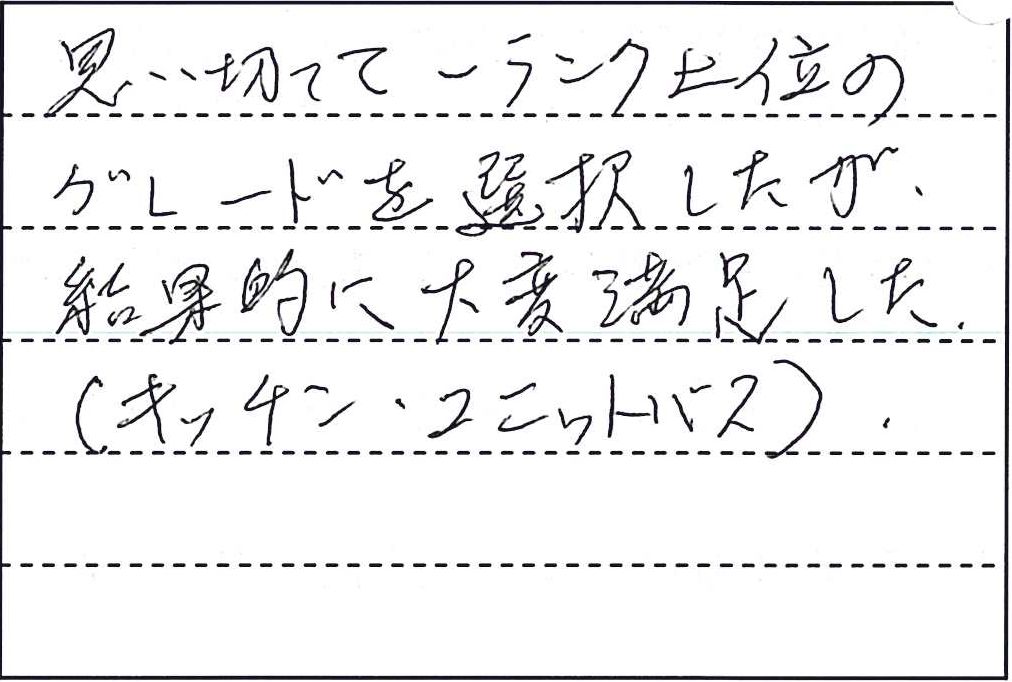 思い切って一ランク上位の
グレードを選択したが、
結果的に大変満足した.
(キッチン・ユニットバス).